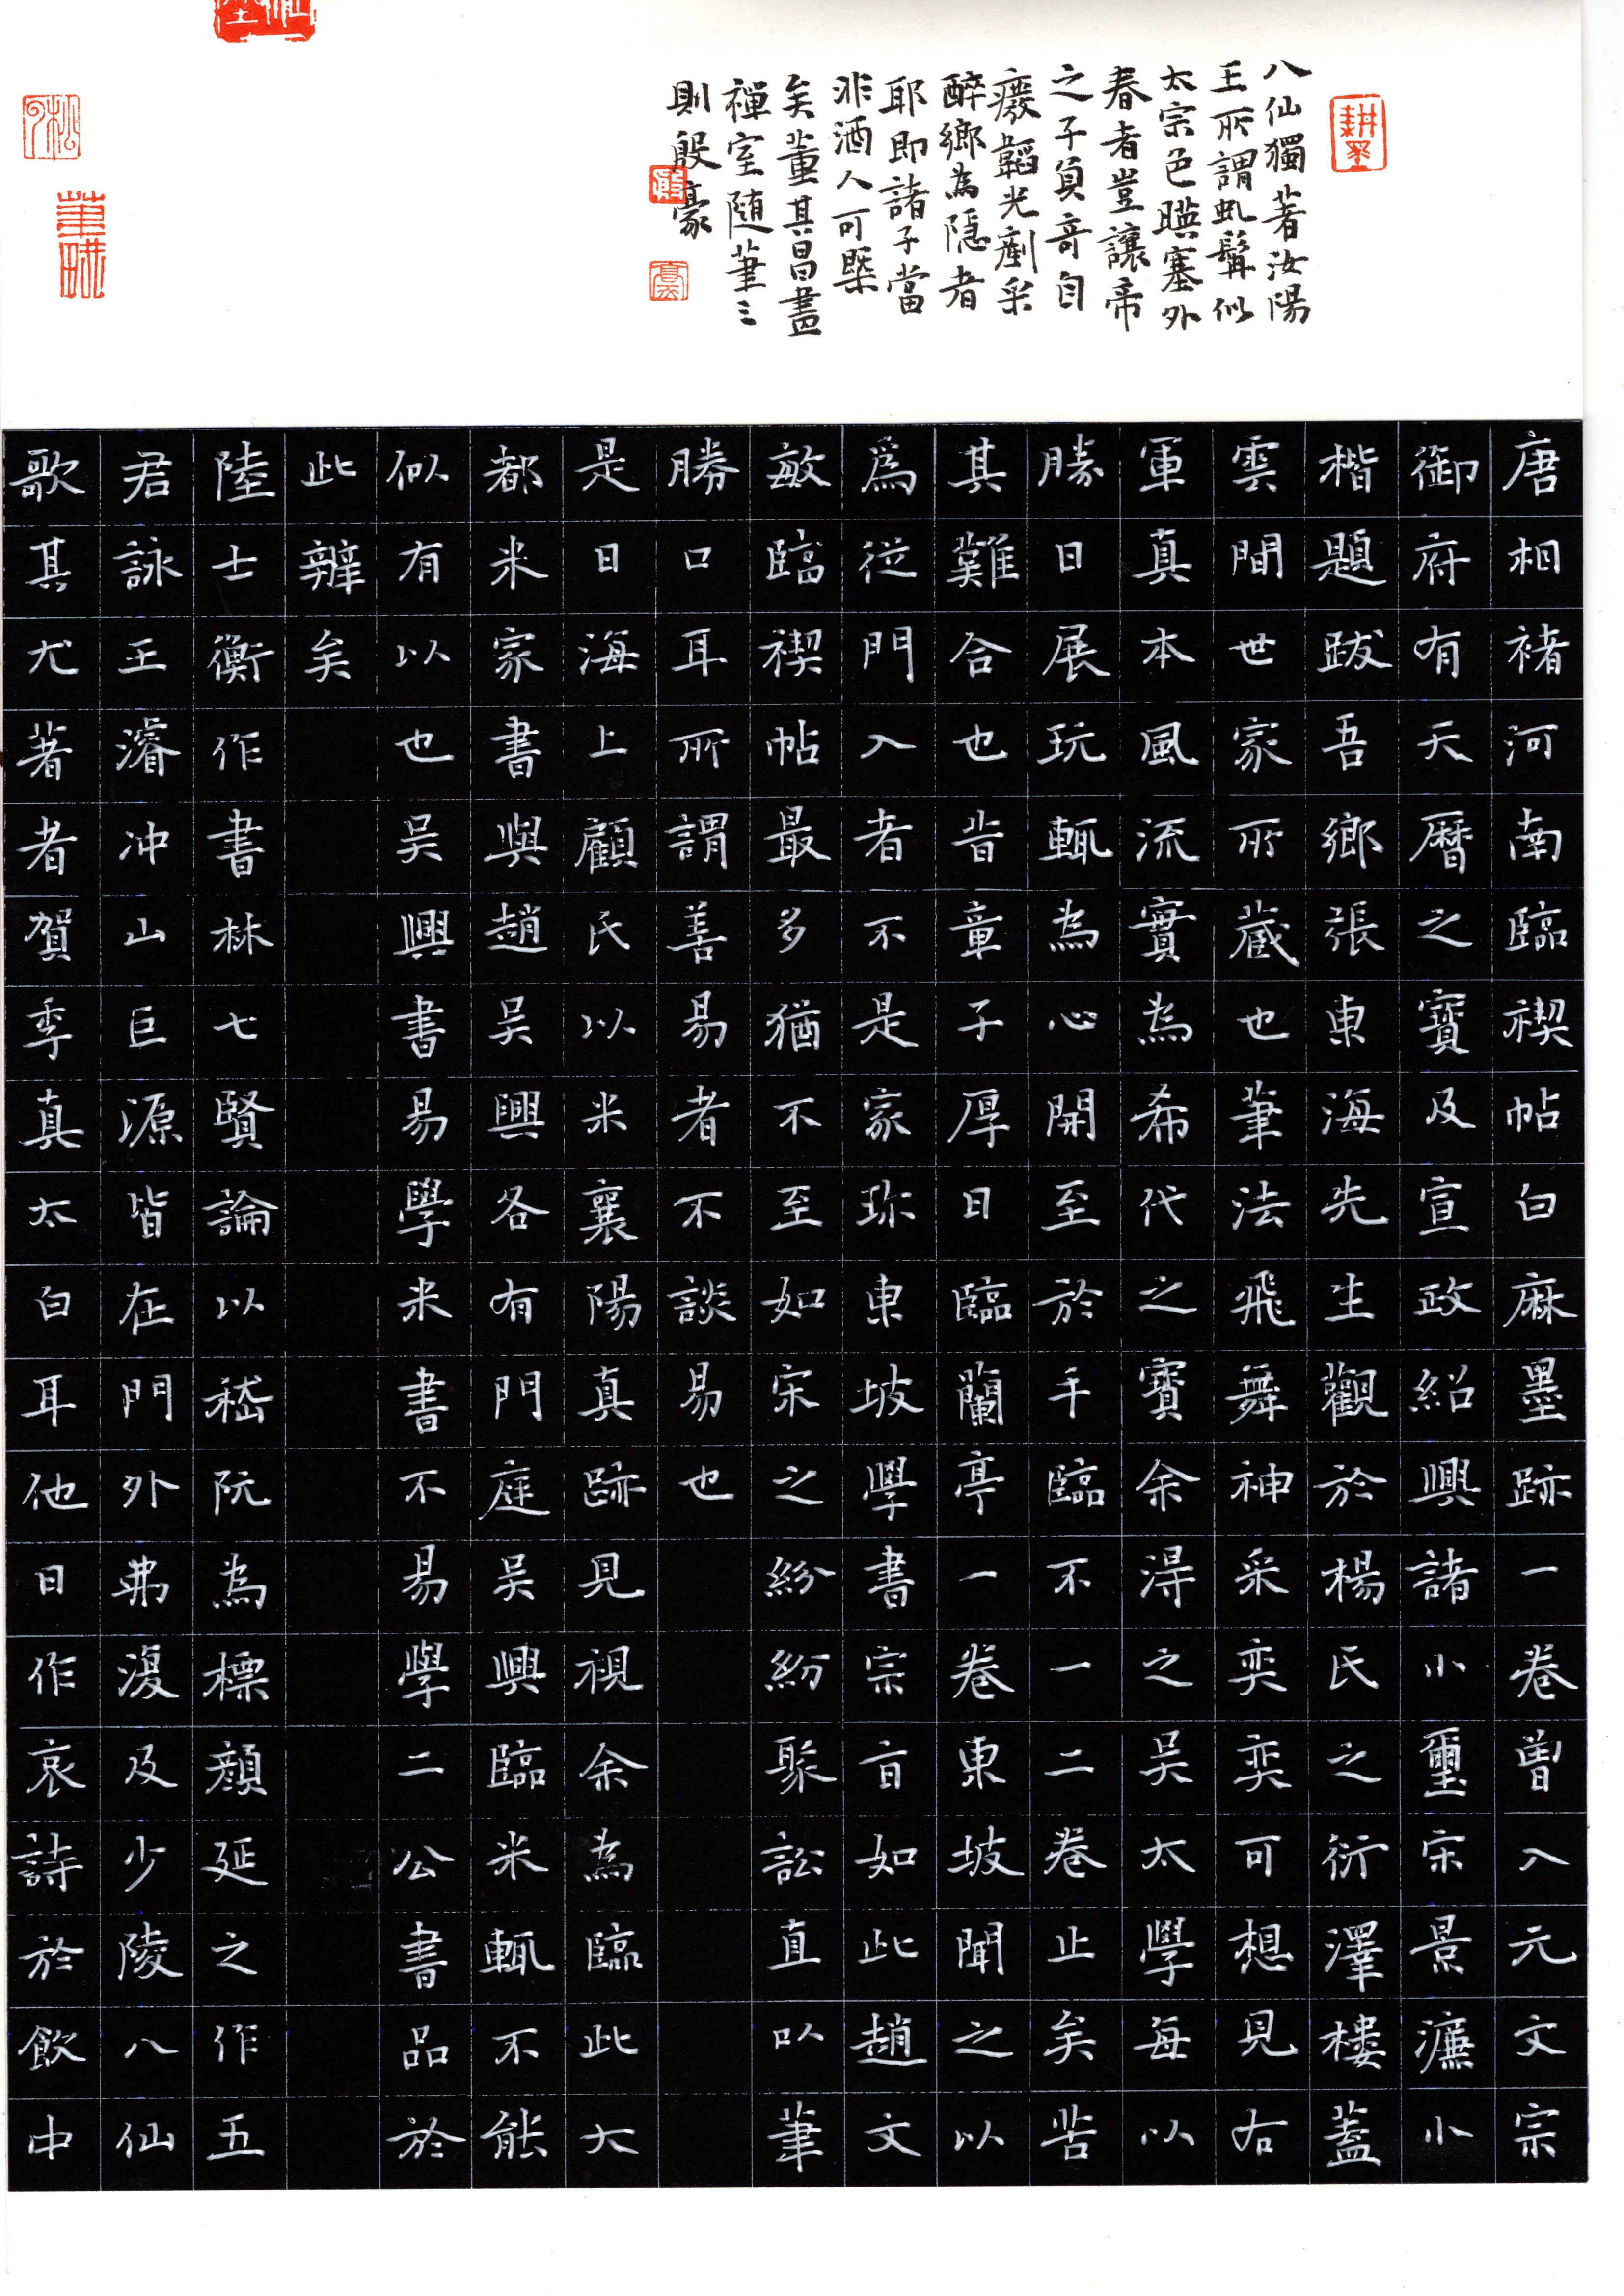 唐相褚河南臨禊帖白麻墨跡一卷曾入元文宗
御府有天曆之寶及宣政紹興諸小璽宋景濂小
楷題跋吾鄉張東海先生觀於楊氏之衍澤樓蓋
雲間世家所藏也筆法飛舞神采奕奕可想見右
軍真本風流實為希代之寶余得之吳太學每以
勝日展玩輒為心開至於手臨不一二卷止矣苦
其難合也昔章子厚日臨蘭亭一卷東坡聞之以
爲從門入者不是家珎東坡學書宗旨如此趙文
敏臨禊帖最多猶不至如宋之紛紛聚訟直以筆
勝口耳所謂善易者不談易也
是日海上顧氏以米襄陽真跡見視余為臨此大
都米家書與趙吳興各有門庭吳興臨米輒不能
似有以也吳興書易學米書不易學二公書品於
此辨矣
陸士衡作書林七賢論以嵇阮為標顏延之作五
君詠王濬冲山巨源皆在門外弗復及少陵八仙
歌其尤著者賀季真太白耳他日作哀詩於飲中
耕墨
八仙獨著汝陽
王所謂虬髯似
太宗色暎塞外
春者豈讓帝
之子負奇自
癈韜光剷采
醉鄉為隱者
耶即諸子當
非酒人可槩
矣董其昌畫
禪室随筆三
則殷豪
殷
豪